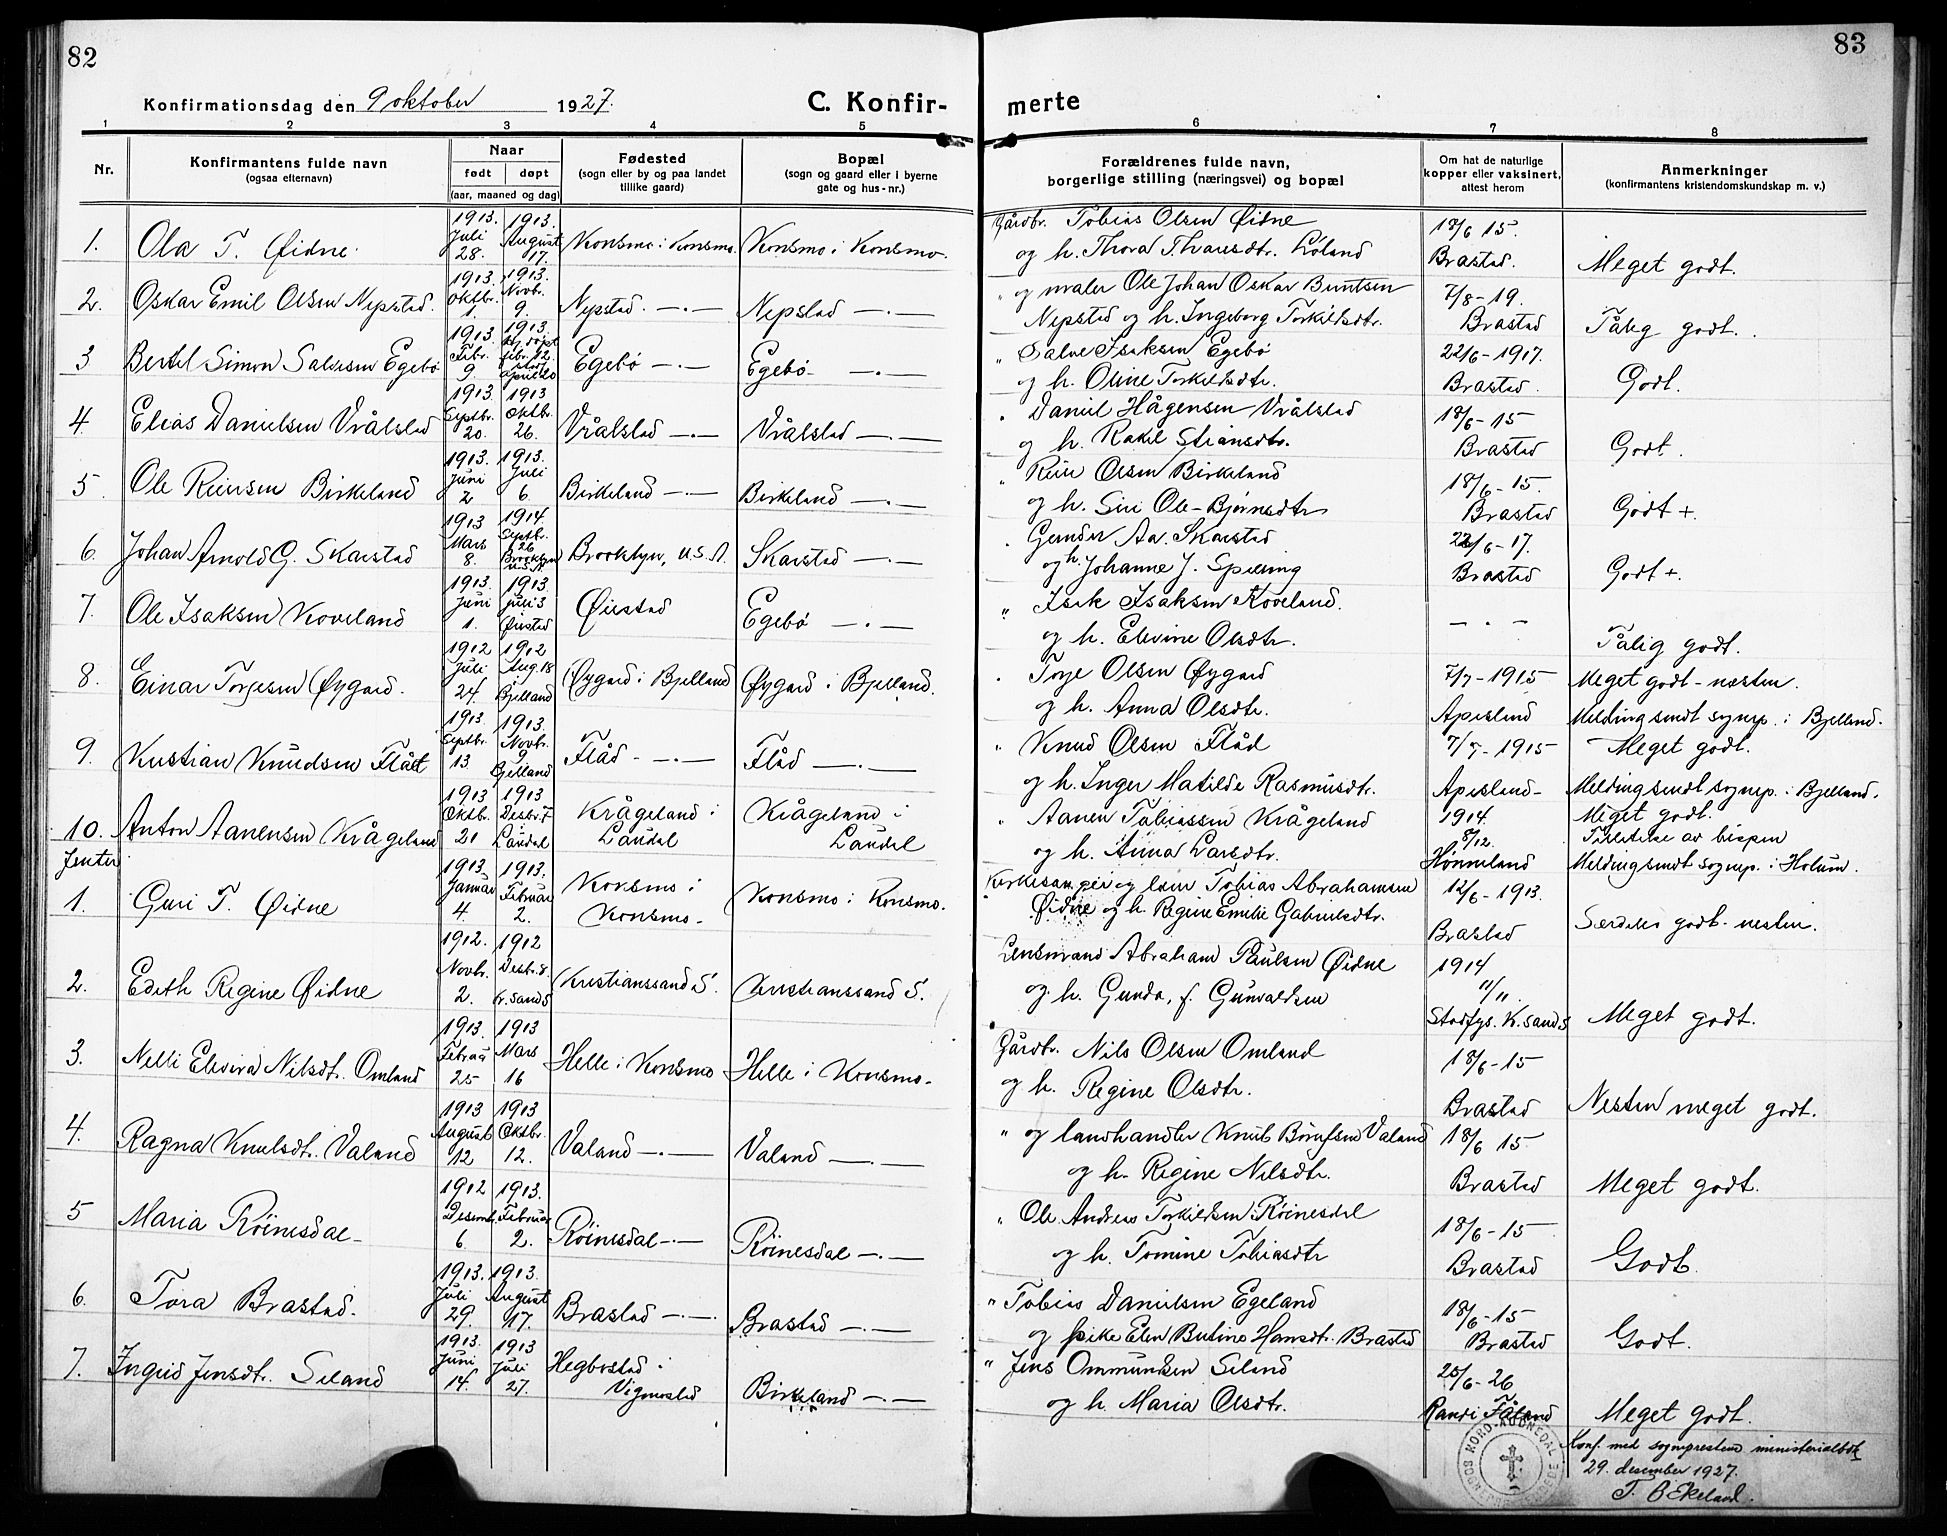 82
83
Konfirmationsdag den 9 oktober 1927.
C. Konfir-
merte
1 2 3 4 5 6 7 8
Nr.
Konfirmantens fulde navn
(ogsaa efternavn)
Naar
født døpt
(aar, maaned og dag)
Fødested
(sogn eller by og paa landet
tillike gaard)
Bopæl
(sogn og gaard eller i byerne
gate og hus-nr.)
Forældrenes fulde navn,
borgerlige stilling (næringsvei) og bopæl
Om hat de naturlige
kopper eller vaksinert,
attest herom
Anmerkninger
(konfirmantens kristendomskundskap m. v.)
1. Ola T. Øidne. 1913. Juli 28. 1913. August 17. Konsmo i Konsmo. Konsmo i Konsmo.
Gårdbr. Tobias Olsen Øidne 18/6 15.
og h. Thora Tharesdtr. Løland Brastad. Meget godt.
2. Oskar Emil Olsen Nepstad. 1913. Oktbr. 1. 1913. Novbr. 9. Nepstad —.— Nepstad —.—
" og maler Ole Johan Oskar Berntsen 7/8-19.
Nepstad og h. Ingeborg Torkildsdtr. Brastad Tålig godt.
3 Bertel Simon Salvesen Egebø 1913. Febr. 9. 1913. hj. døpt febr. 12 april 20 Egebø —.— Egebø —.—
" Salve Isaksen Egebø 22/6-1917.
og h. Oline Torkildsdtr. Brastad. Godt.
4. Elias Danielsen Vrålstad 1913. Septbr. 20. 1913 Oktbr. 26. Vrålstad —.— Vrålstad —.—
" Daniel Hågensen Vrålstad 18/6-15
og h. Rakel Stiansdtr. Brastad Godt.
5. Ole Reiersen Birkeland 1913. Juni 2 1913. Juli 6. Birkeland —.— Birkeland —.—
" Reier Olsen Birkeland 18/6-15.
og h. Siri Ole-Bjørnsdtr Brastad Godt +.
6. Johan Arnold G. Skarstad 1913 Mars 8. 1914. Septbr. 26 Brooklyn U.S.A. Brooklyn, U.S.A. Skarstad —.—
" Gunder Aa. Skarstad 22/6-17.
og h. Johanne J. Spilling Brastad Godt +.
7. Ole Isaksen Koveland 1913. Juni 1. 1913 juli 3 Øiestad Øiestad Egebø —.—
" Isak Isaksen Koveland. — " —
og h. Elevine Olsdtr. Tålig godt.
8. Einar Torjesen Øygard. 1912 Juli 24. 1912 Aug. 18 Bjelland Øygard i Bjelland Øygard i Bjelland.
" Torje Olsen Øygard 7/7-1915 Meget godt - næsten.
og h. Anna Olsdtr. Apesland Melding sendt sognep. i Bjelland.
9. Kristian Knudsen Flåt 1913. Septbr. 13. 1913. Novbr. 9 Bjelland Flåd —.— Flåd —.—
" Knud Olsen Flåd 7/7-1915 Meget godt.
og h. Inger Matilde Rasmusdtr. Apesland- Melding sendt sognep. i Bjelland.
10. Anton Aanensen Krågeland 1913 Oktbr. 21 1913 Desbr. 7 Laudal Krågeland i Laudal Krågeland i Laudal
" Aanen Tobiassen Krågeland 1914. 8/12. Meget godt. Tillatelse av bispen
og h. Anna Larsdtr. Hønneland Melding sendt sognep. i Holum.
Jenter
1. Guri T. Øidne 1913. Januar 4. 1913. Februar 2. Konsmo i Konsmo. Konsmo i Konsmo.
Kirkesanger og lærer Tobias Abrahamsen 12/6-1913.
Øidne og h. Regine Emelie Gabrielsdtr. Brastad Særdeles godt - nesten.
2. Edith Regine Øidne 1912. Novbr. 2. 1912 Desbr. 8. Kr.sand S Kristianssand S. Kristianssand S.
Lensmand Abraham Paulsen Øidne 1914 11/11.
og h. Gunda, f. Gunvaldsen Stadfys. K.sand S Meget godt.
3. Nelli Elevira Nilsdtr. Omland 1913. Februar 25 1913 Mars 16 Helle i Konsmo Helle i Konsmo.
Gårdbr. Nils Olsen Omland 18/6-15
og h. Regine Olsdtr. Brastad Nesten meget godt.
4. Ragna Knutsdtr. Valand 1913 August 12 1913 Oktbr. 12. Valand —.— Valand —.—
" og landhandler Knut Børufsen Valand 18/6 15
og h. Regine Nilsdtr. Brastad Meget godt.
5 Maria Röinesdal 1912 Desembr. 6. 1913. Februar 2. Röinesdal —.— Röinesdal —.—
" Ole Andreas Torkildsen Röinesdal 18/6-15
og h. Tomine Tobiasdtr Brastad Godt.
6. Tora Brastad. 1913. Juli 29. 1913. August 17. Brastad —.— Brastad —.—
" Tobias Danielsen Egeland 18/6-15
og pike Elen Butine Hansdtr. Brastad Brastad Godt.
7. Ingrid Jensdtr. Seland 1913. Juni 14. 1913 Juli 27. Hegbostad i Vigmostad Birkeland —.—
" Jens Ommundsen Seland 25/6-26
og h. Maria Olsdtr. Randi Faland Meget godt.
Konf. med sogneprestens ministerialbok
29. desember 1927.
T. B. Ekeland.